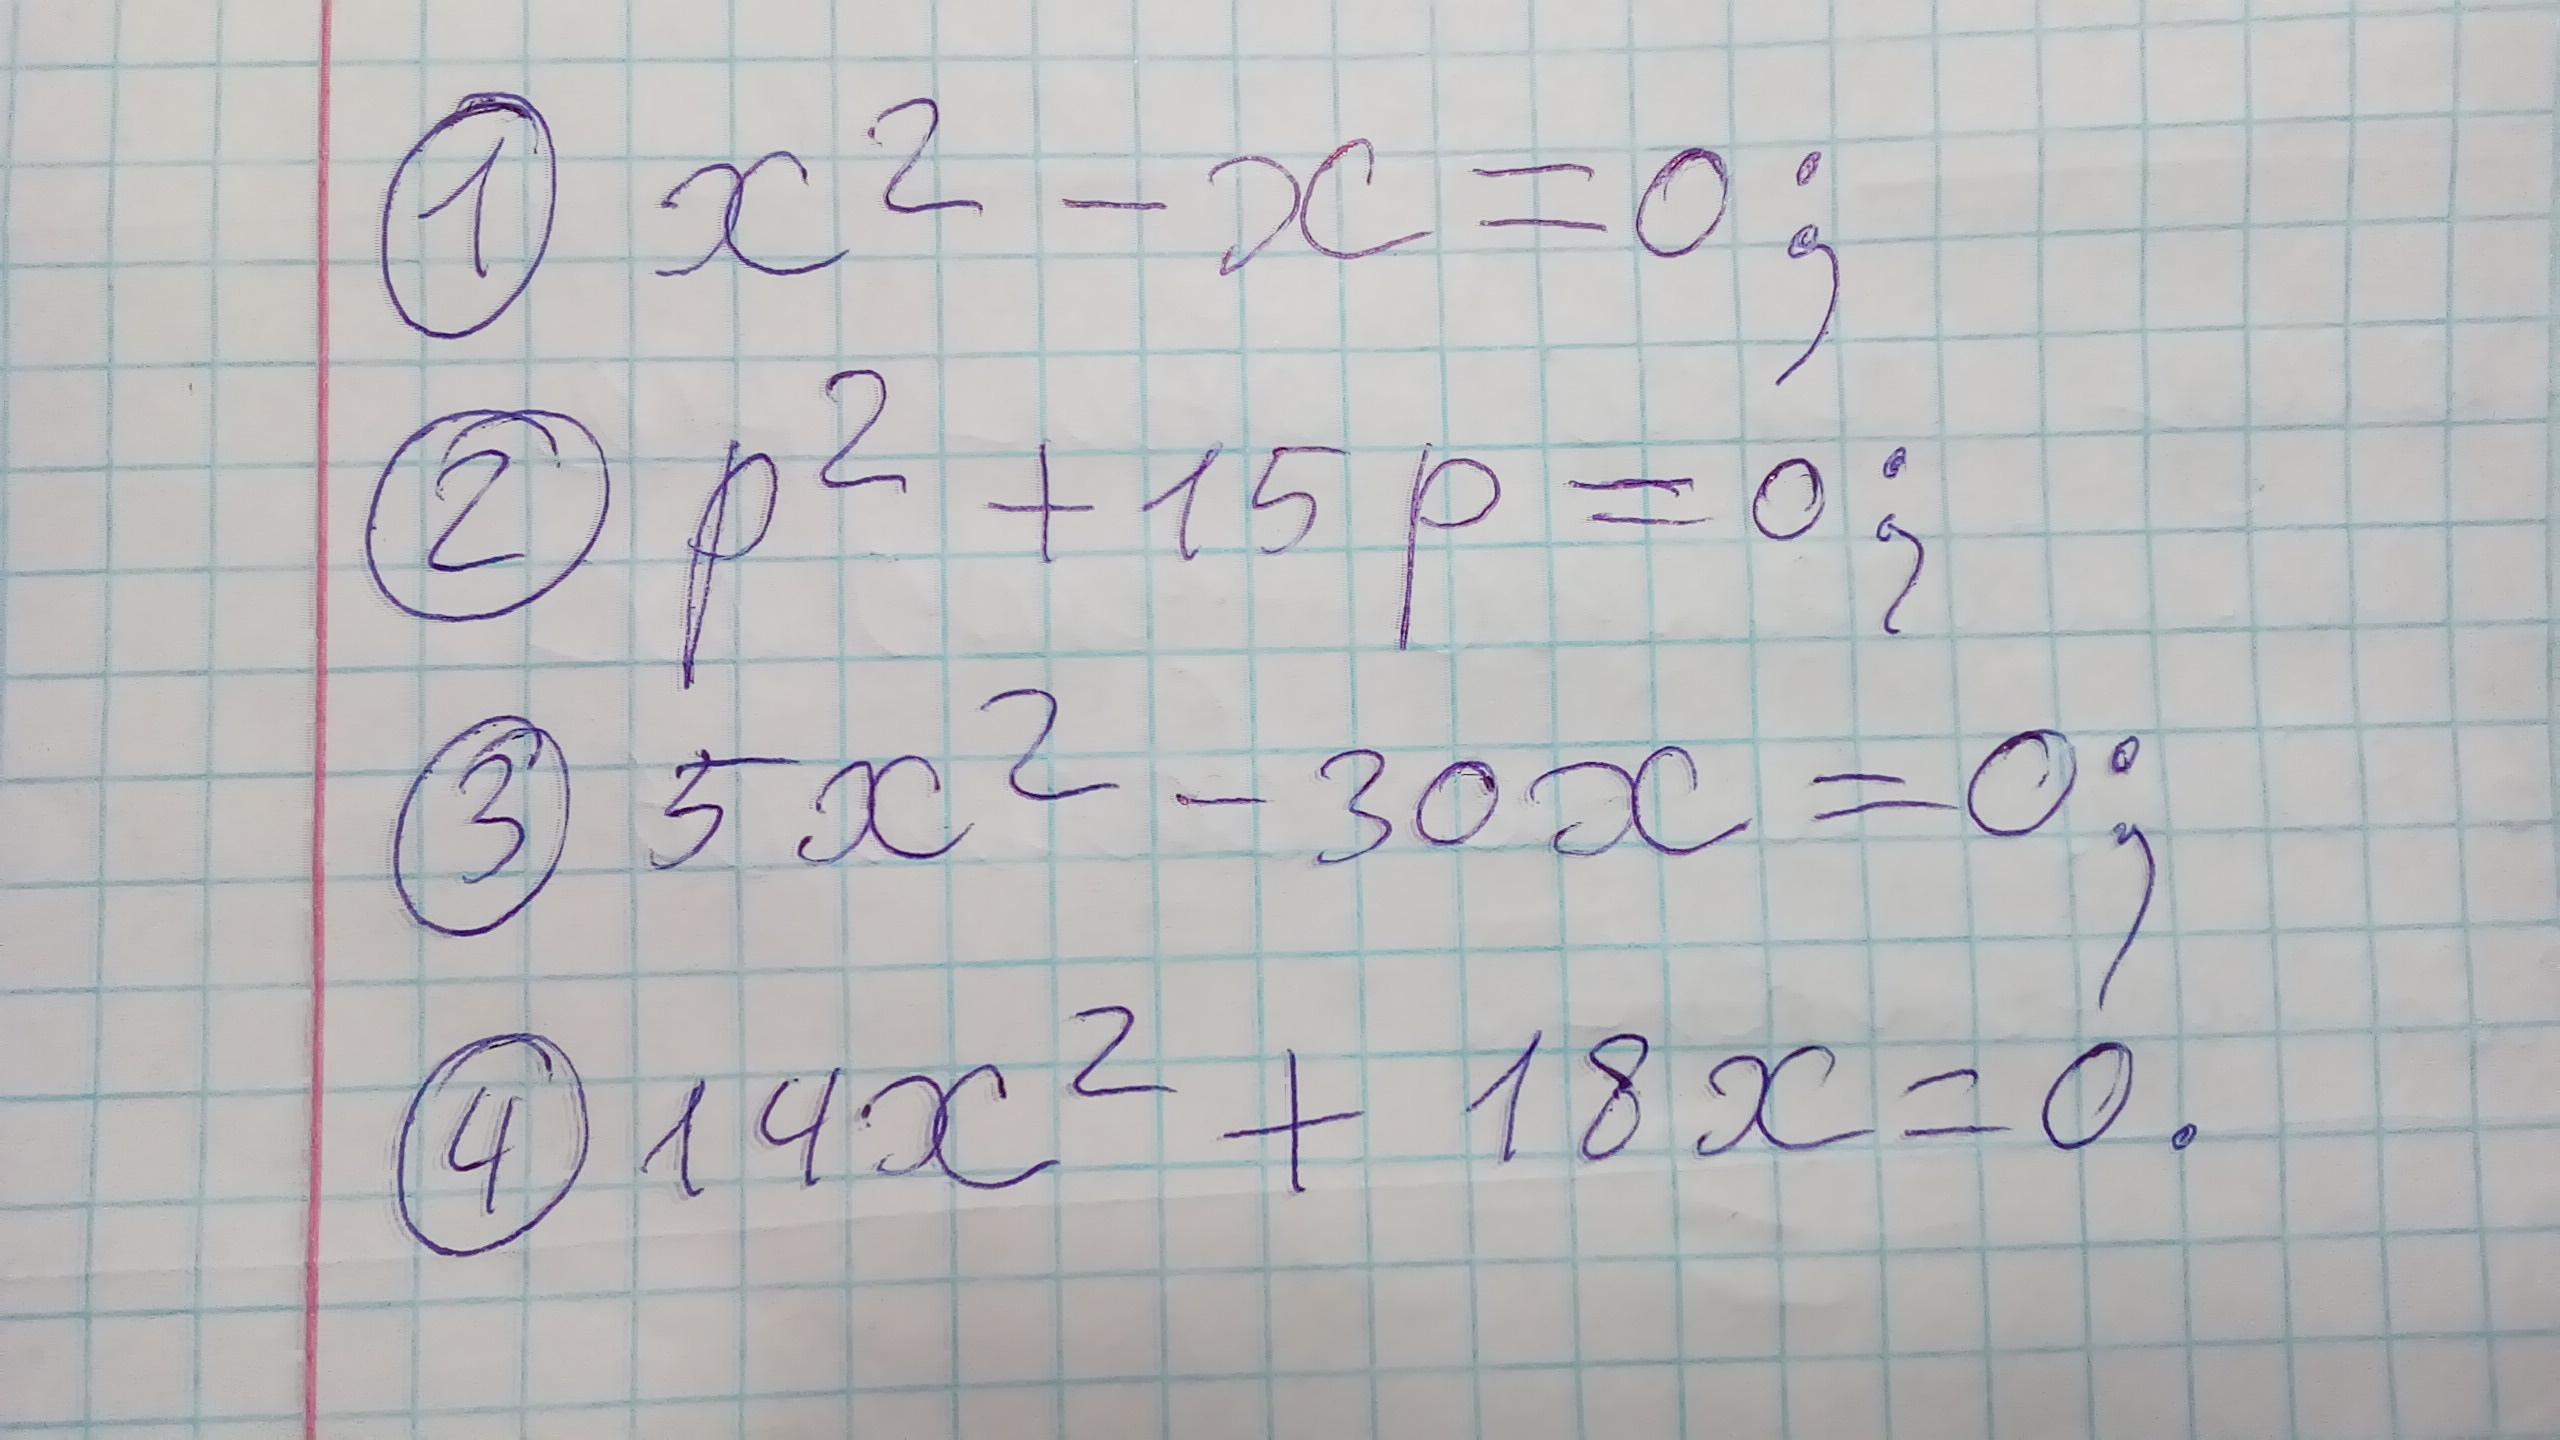 ① x² - x = 0;
② p² + 15p = 0;
③ 5x² - 30x = 0;
④ 14x² + 18x = 0.